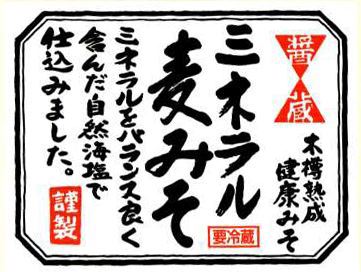 醤蔵
木樽熟成
健康みそ
ミネラル
麦みそ
要冷蔵
ミネラルをバランス良く
含んだ自然海塩で
仕込みました。
謹製